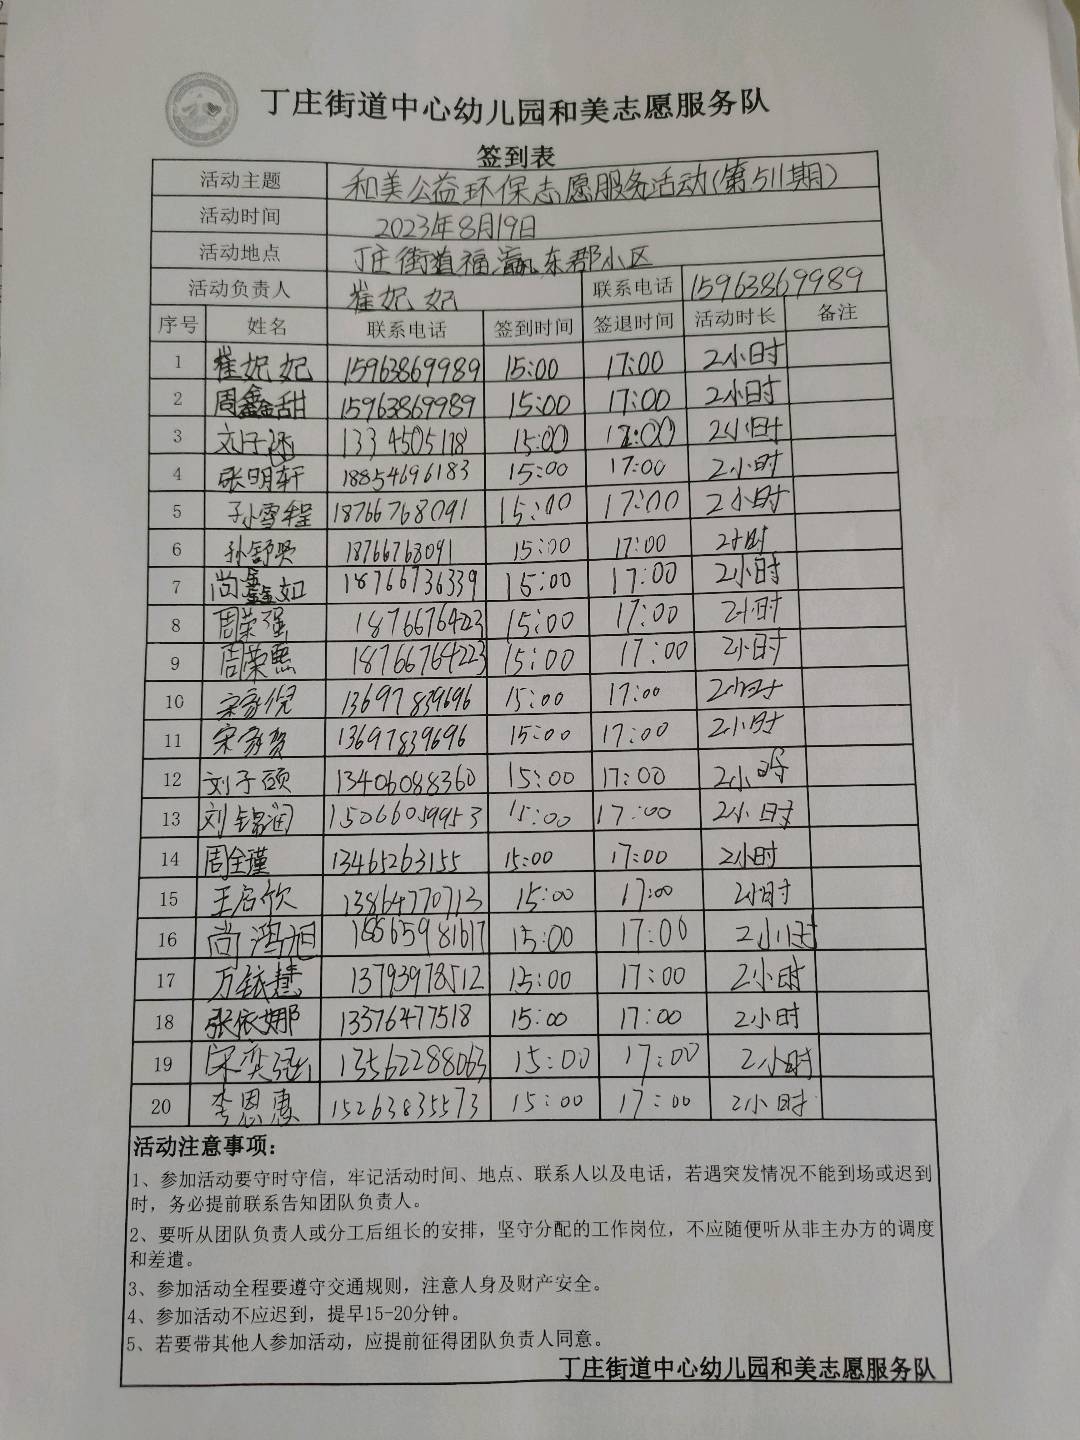 丁庄街道中心幼儿园和美志愿服务队
签到表
活动主题 和美公益环保志愿服务活动(第511期)
活动时间 2023年8月19日
活动地点 丁庄街道福瀛东郡小区
活动负责人 崔妃妃 联系电话 15963869989
序号 姓名 联系电话 签到时间 签退时间 活动时长 备注
1 崔妃妃 15963869989 15:00 17:00 2小时
2 周鑫甜 15963869989 15:00 17:00 2小时
3 刘子涵 15:00 17:00 2小时
4 张明轩 18854696183 15:00 17:00 2小时
5 孙雪程 18766768091 15:00 17:00 2小时
6 孙舒贤 18766768091 15:00 17:00 2小时
7 尚鑫如 18766736339 15:00 17:00 2小时
8 周荣强 18766764223 15:00 17:00 2小时
9 周荣熙 18766764223 15:00 17:00 2小时
10 宋家倪 13697839696 15:00 17:00 2小时
11 宋家贺 13697839696 15:00 17:00 2小时
12 刘子硕 13406088360 15:00 17:00 2小时
13 刘锦润 15066059953 15:00 17:00 2小时
14 周全瑾 13465263155 15:00 17:00 2小时
15 王启欣 13864770713 15:00 17:00 2小时
16 尚鸿旭 18865981617 15:00 17:00 2小时
17 万铱慧 13793978512 15:00 17:00 2小时
18 张依娜 13376477518 15:00 17:00 2小时
19 宋奕 13562288063 15:00 17:00 2小时
20 李恩惠 15263835573 15:00 17:00 2小时
活动注意事项:
1、参加活动要守时守信，牢记活动时间、地点、联系人以及电话，若遇突发情况不能到场或迟到
时，务必提前联系告知团队负责人。
2、要听从团队负责人或分工后组长的安排，坚守分配的工作岗位，不应随便听从非主办方的调度
和差遣。
3、参加活动全程要遵守交通规则，注意人身及财产安全。
4、参加活动不应迟到，提早15-20分钟。
5、若要带其他人参加活动，应提前征得团队负责人同意。
丁庄街道中心幼儿园和美志愿服务队